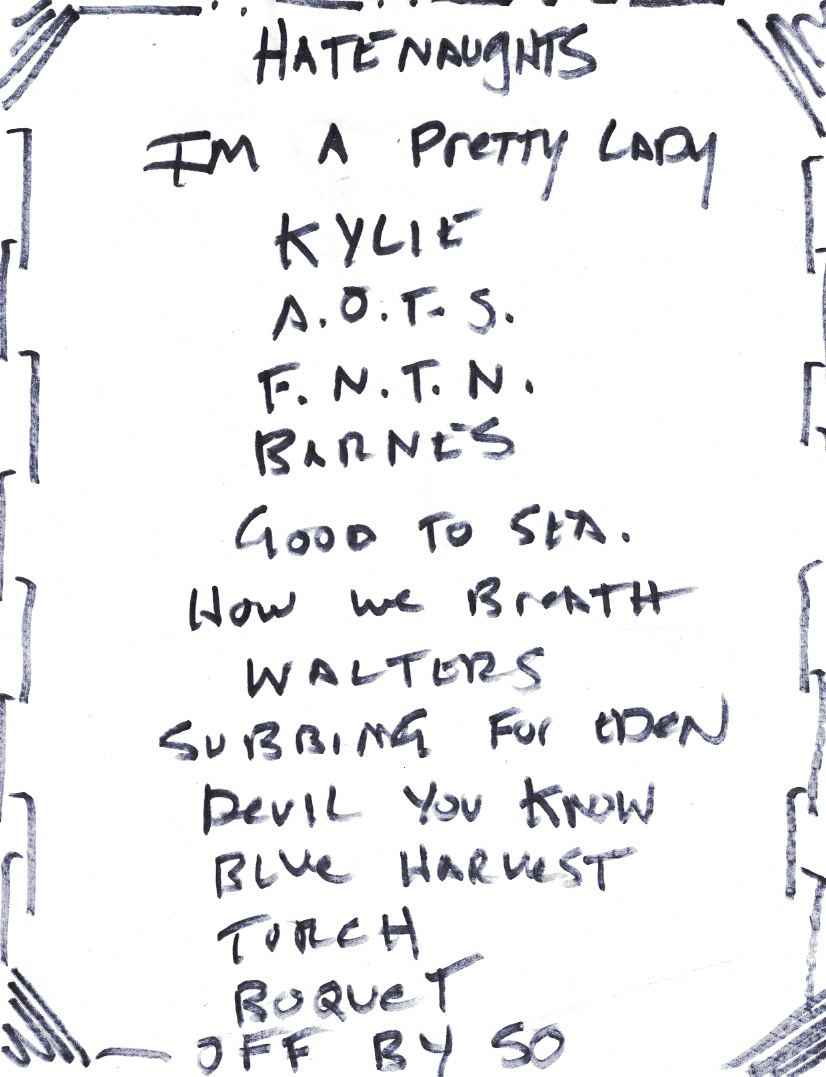 HATENAUGHTS
IM A PrETTY LADY
KYLIE
A.O.T.S.
F.N.T.N.
BARNES
GOOD TO SEA.
How we BreATH
WALTERS
SUBBING For EDEN
DeVIL YOU KNOW
BLUe HARVeST
TORCH
BOQUeT
OFF BY SO